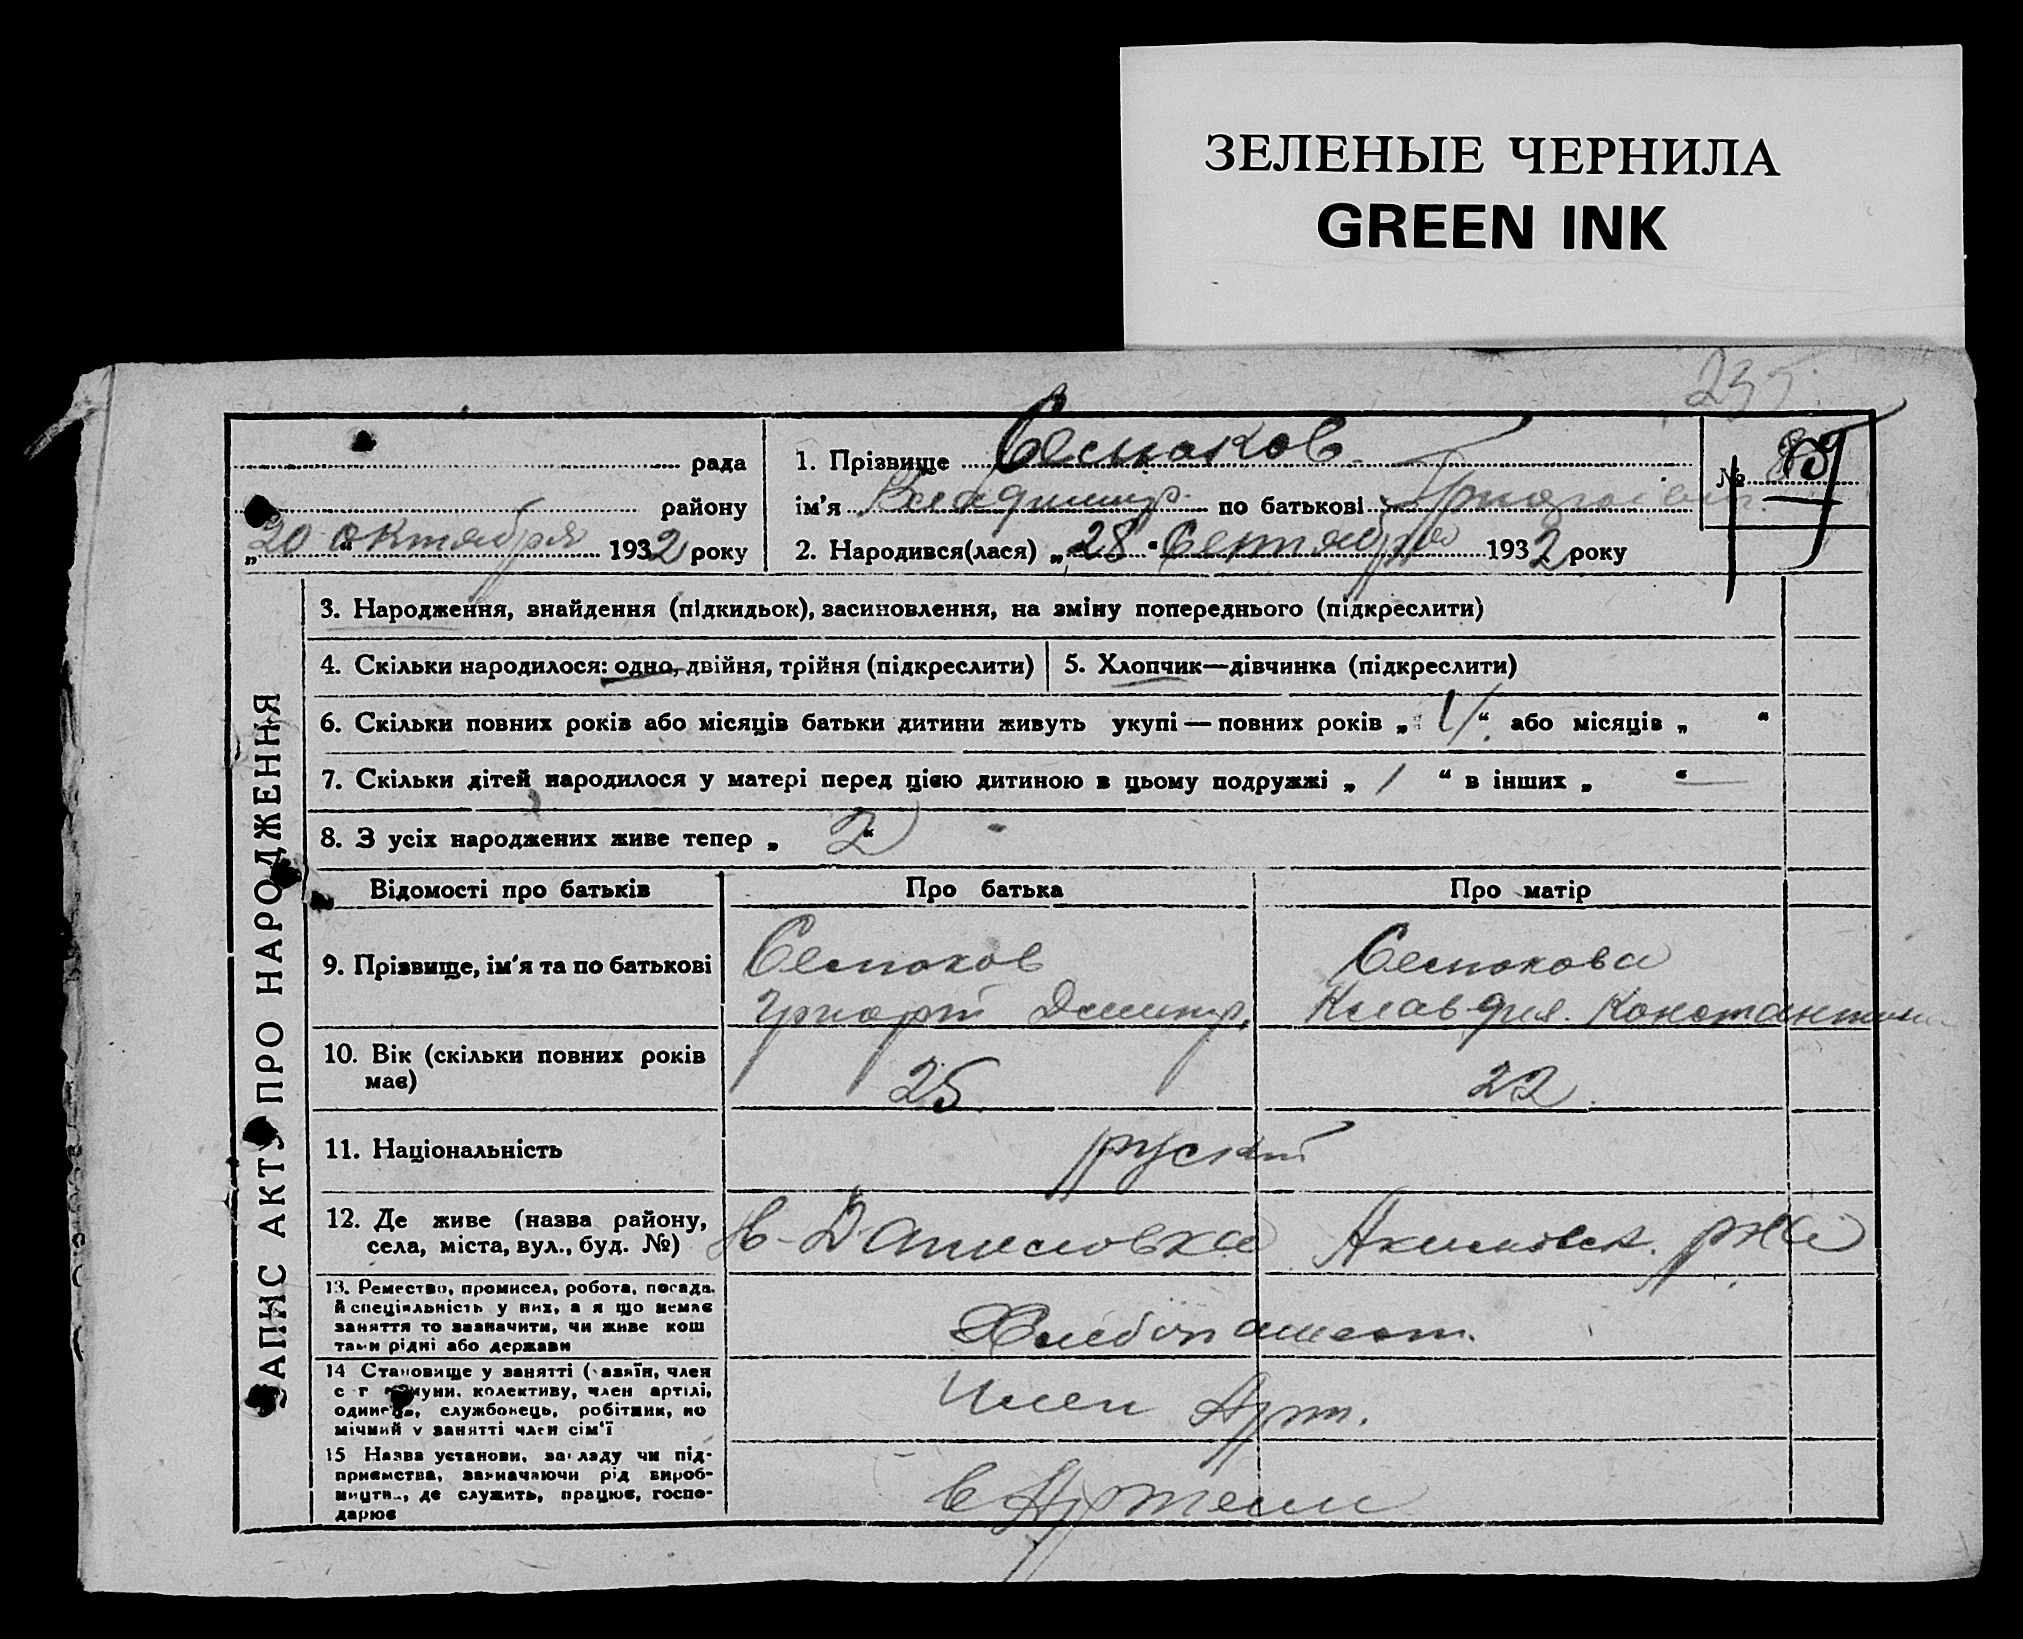 ЗЕЛЕНЫЕ ЧЕРНИЛА
GREEN INK
235
рада
району
„20“ октября 1932 року
1. Прізвище
ім'я Владимир по батькові
2. Народився(лася) „28“ Сентября 1932 року
№
ЗАПИС АКТУ ПРО НАРОДЖЕННЯ
3. Народження, знайдення (підкидьок), засиновлення, на зміну попереднього (підкреслити)
4. Скільки народилося: одно, двійня, трійня (підкреслити)
5. Хлопчик—дівчинка (підкреслити)
6. Скільки повних років або місяців батьки дитини живуть укупі — повних років „ 4 “ або місяців „ “
7. Скільки дітей народилося у матері перед цією дитиною в цьому подружжі „ 1 “ в інших „ “ —
8. З усіх народжених живе тепер „ 2 “
Відомості про батьків
Про батька
Про матір
9. Прізвище, ім'я та по батькові
Дмитр.
Клавдия. Константин
10. Вік (скільки повних років
має)
25
22.
11. Національність
руский
12. Де живе (назва району,
села, міста, вул., буд. №)
Н-Даниловка Акимовск. р-на
13. Ремество, промисел, робота, посада,
й спеціяльність у них, а я що немає
заняття то зазначити, чи живе кош
тами рідні або держави
Хлебопашест.
14 Становище у занятті (хазяїн, член
с г комуни, колективу, член артілі,
одинець, службовець, робітник, по
мічний у занятті член сім'ї
Член Арт.
15 Назва установи, закладу чи під-
приємства, зазначаючи рід вироб-
ництв., де служить, працює, госпо-
дарює
в Артели